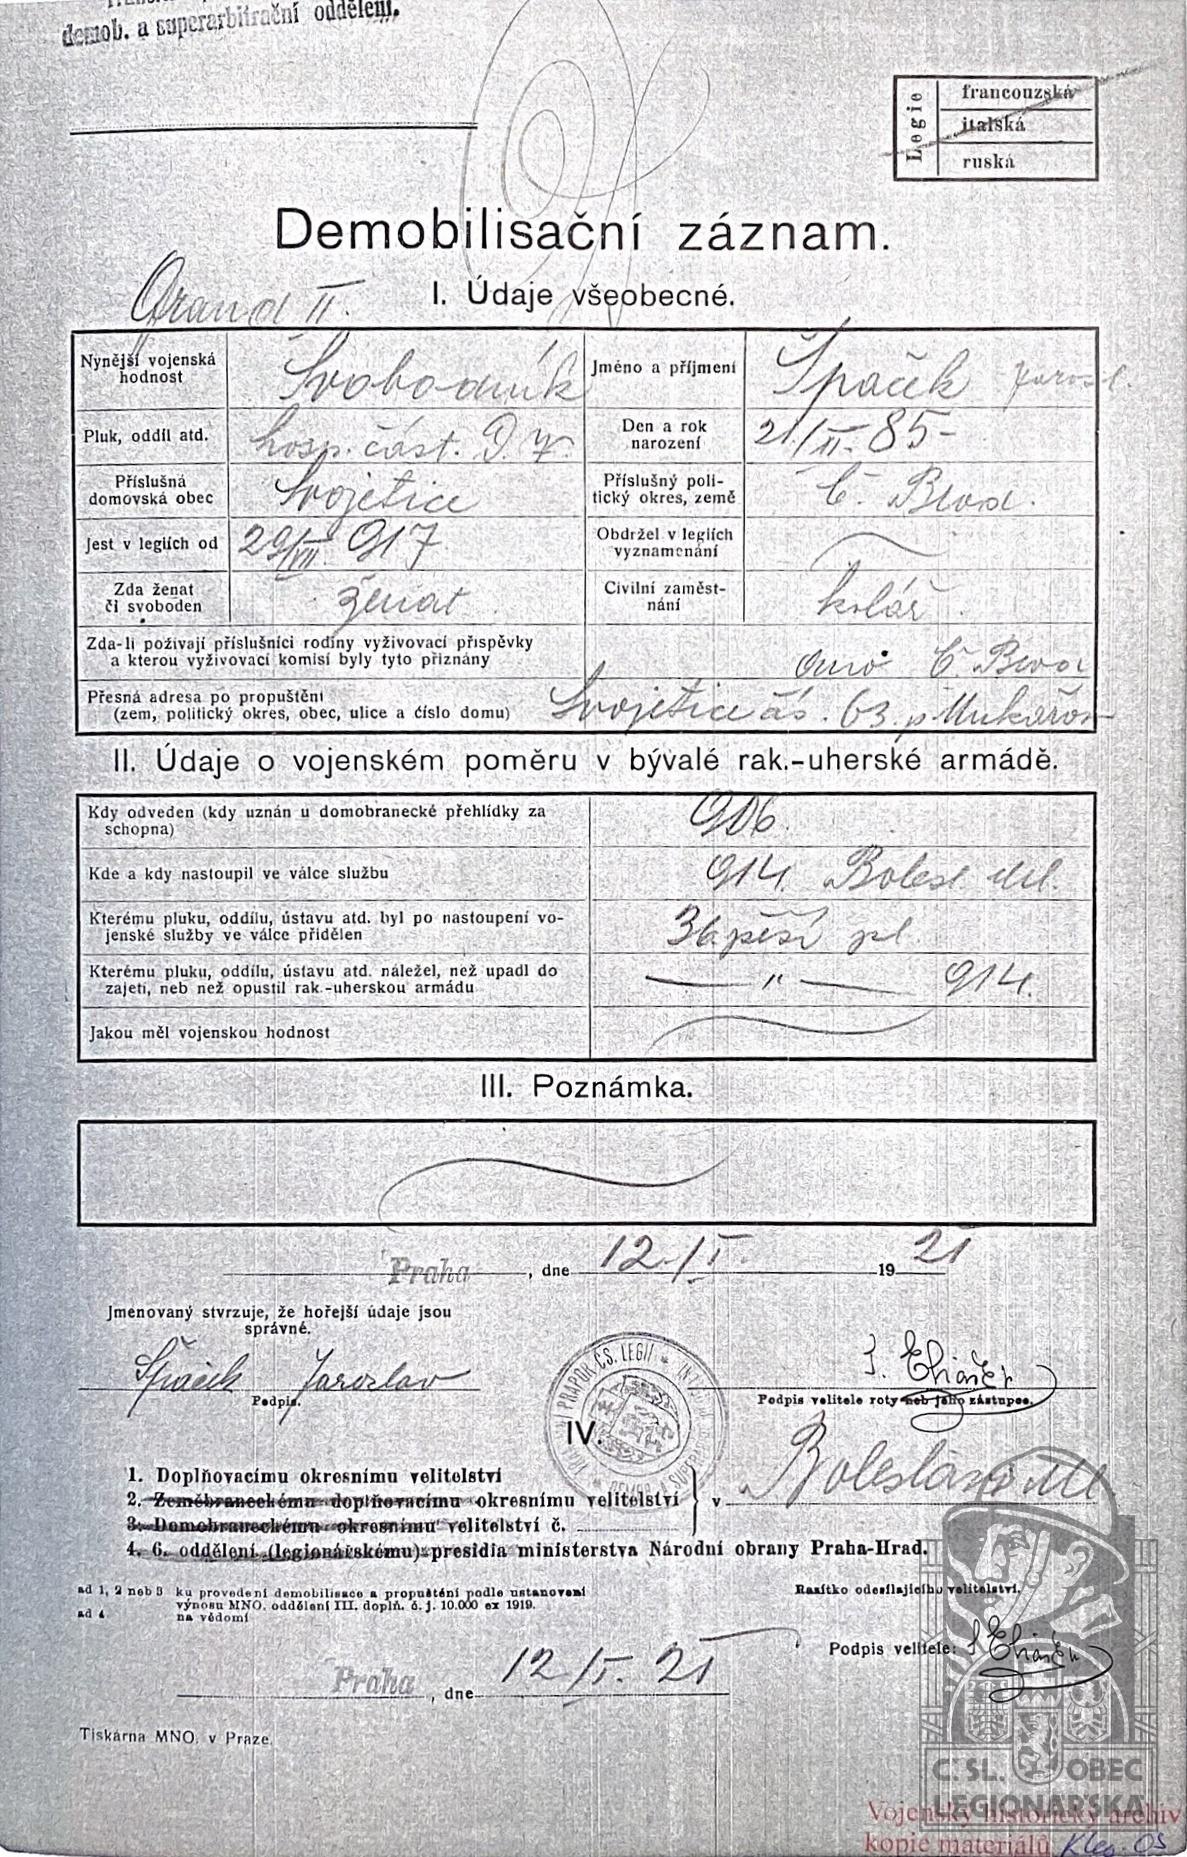 demob. a superarbitrační oddělení.
Legie
francouzská
italská
ruská
Demobilisační záznam.
I. Údaje všeobecné.
II.
Nynější vojenská hodnost
Svobodník
Jméno a příjmení
Špaček Jarosl.
Pluk, oddíl atd.
hosp. část.
Den a rok narození
21./II. 85-
Příslušná domovská obec
Svojetice
Příslušný politický okres, země
Č. Brod.
Jest v legiích od
29/VII. 917
Obdržel v legiích vyznamenání
Zda ženat či svoboden
ženat
Civilní zaměstnání
kolář
Zda-li požívají příslušníci rodiny vyživovací příspěvky
a kterou vyživovací komisí byly tyto přiznány
ano Č. Brod
Přesná adresa po propuštění
(zem, politický okres, obec, ulice a číslo domu)
Svojetice čís. 63. p Mukařov
II. Údaje o vojenském poměru v bývalé rak.-uherské armádě.
Kdy odveden (kdy uznán u domobranecké přehlídky za
schopna)
906.
Kde a kdy nastoupil ve válce službu
914. Bolesl. Ml.
Kterému pluku, oddílu, ústavu atd. byl po nastoupení vo-
jenské služby ve válce přidělen
36. pěší pl.
Kterému pluku, oddílu, ústavu atd. náležel, než upadl do
zajetí, neb než opustil rak.-uherskou armádu
— " — 914.
Jakou měl vojenskou hodnost
III. Poznámka.
Praha, dne 12./I. 1921
Jmenovaný stvrzuje, že hořejší údaje jsou
správné.
Špaček Jaroslav
Podpis.
Podpis velitele roty neb jeho zástupce.
IV.
1. Doplňovacímu okresnímu velitelství
2. Zeměbraneckému doplňovacímu okresnímu velitelství
3. Domobraneckému okresnímu velitelství č.
v Boleslavi Ml.
4. 6. oddělení (legionářskému) presidia ministerstva Národní obrany Praha-Hrad.
ad 1, 2 neb 3 ku provedení demobilisace a propuštění podle ustanovení
výnosu MNO. oddělení III. doplň. č. j. 10.000 ex 1919.
ad 4 na vědomí
Razítko odesílajícího velitelství.
Podpis velitele:
Praha, dne 12/I. 21
Tiskárna MNO. v Praze.
Č. SL. OBEC
LEGIONÁŘSKÁ
Vojenský historický archiv
kopie materiálů